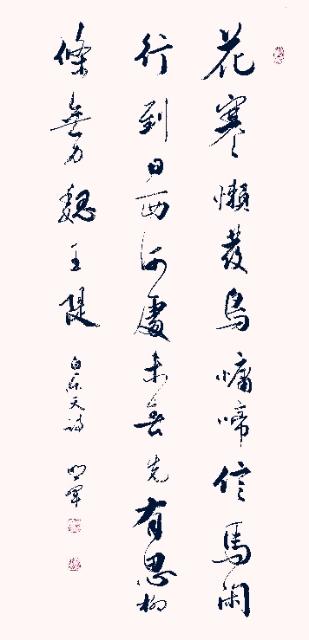 花寒懶發鳥慵啼信馬闲
行到日西何處未春先有思柳
條無力魏王堤 白乐天詩